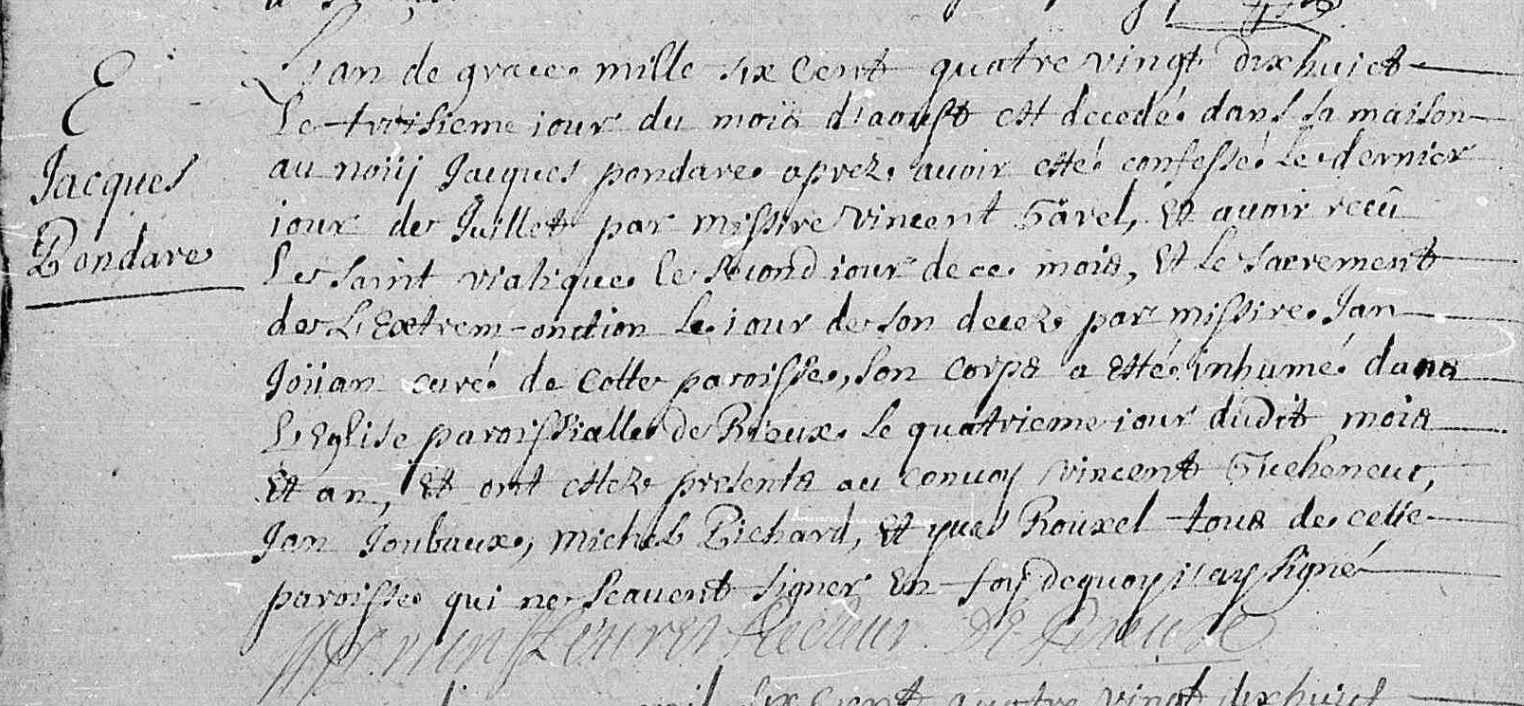 E
Jacques
Pondare
L'an de grace mille six Cent quatre vingt dixhuict
Le troisieme iour du mois d'aoust est decedé dans sa maison
au noüij Jacques pondare aprez auoir esté confessé Le dernier
iour de Juillet par missire Vincent Gärel, Et auoir receû
Le saint viatique le second iour de ce mois, Et Le sacrement
de L'Extrem-onction Le iour de son decez par missire Jan
Joüan curé de Cette paroisse, son corps a Esté inhumé dans
L'Eglise paroissialle de Rieux le quatrieme iour dudit mois
Et an, Et ont estez presents au conuoy Vincent Gueheneuc,
Jan Joubaux, Michel Pichard, Et yues Rouxel tous de cette
paroisse qui ne scauent signer En foy dequoy i'ay signé
recteur De Rieux
six Cent quatre vingt dixhuict